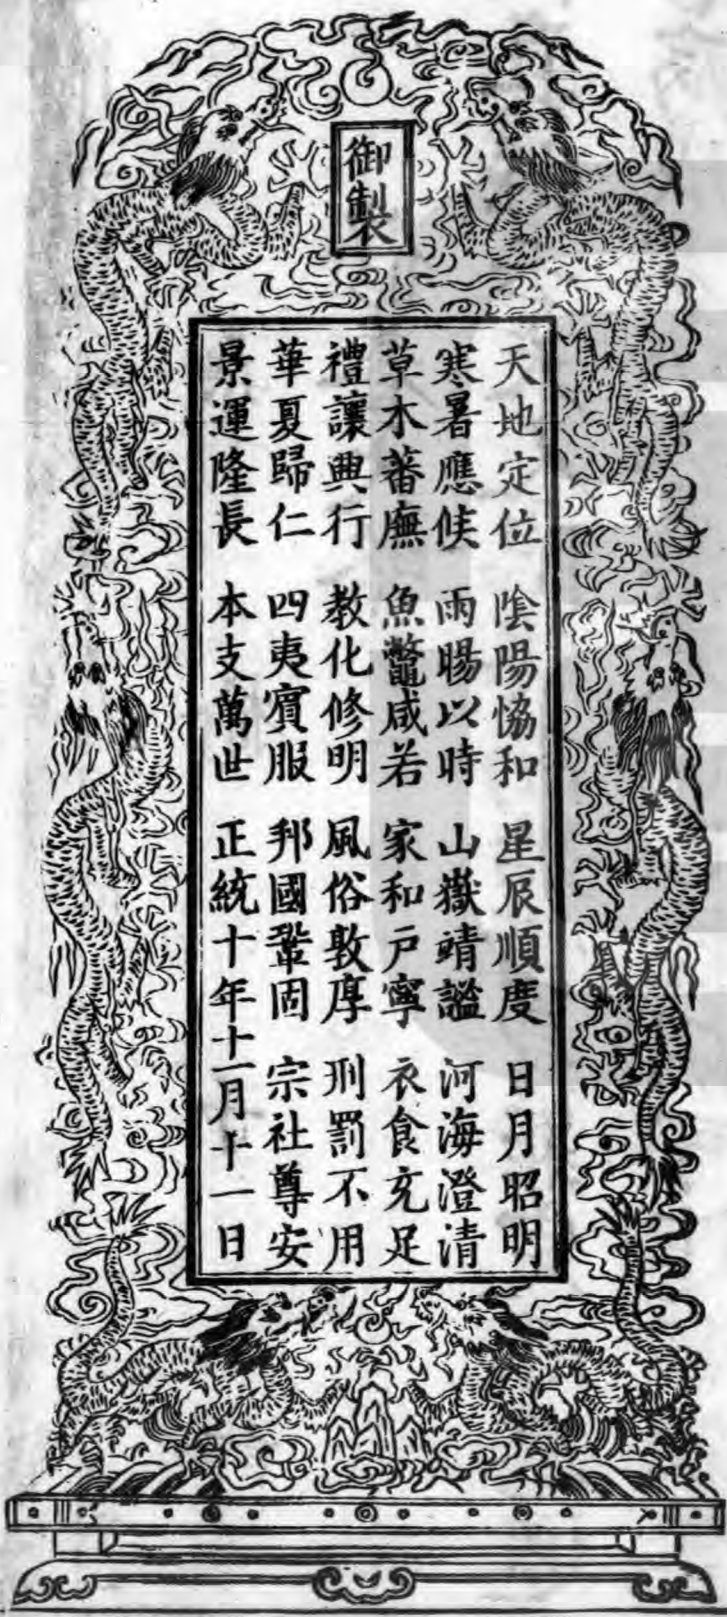 御製
天地定位 陰陽恊和 星辰順度 日月昭明
寒暑應候 雨暘以時 山嶽靖謐 河海澄清
草木蕃廡 魚鼈咸若 家和户寧 衣食充足
禮讓興行 教化修明 風俗敦厚 刑罰不用
華夏歸仁 四夷賓服 邦國鞏固 宗社尊安
景運隆長 本支萬世 正統十年十一月十一日